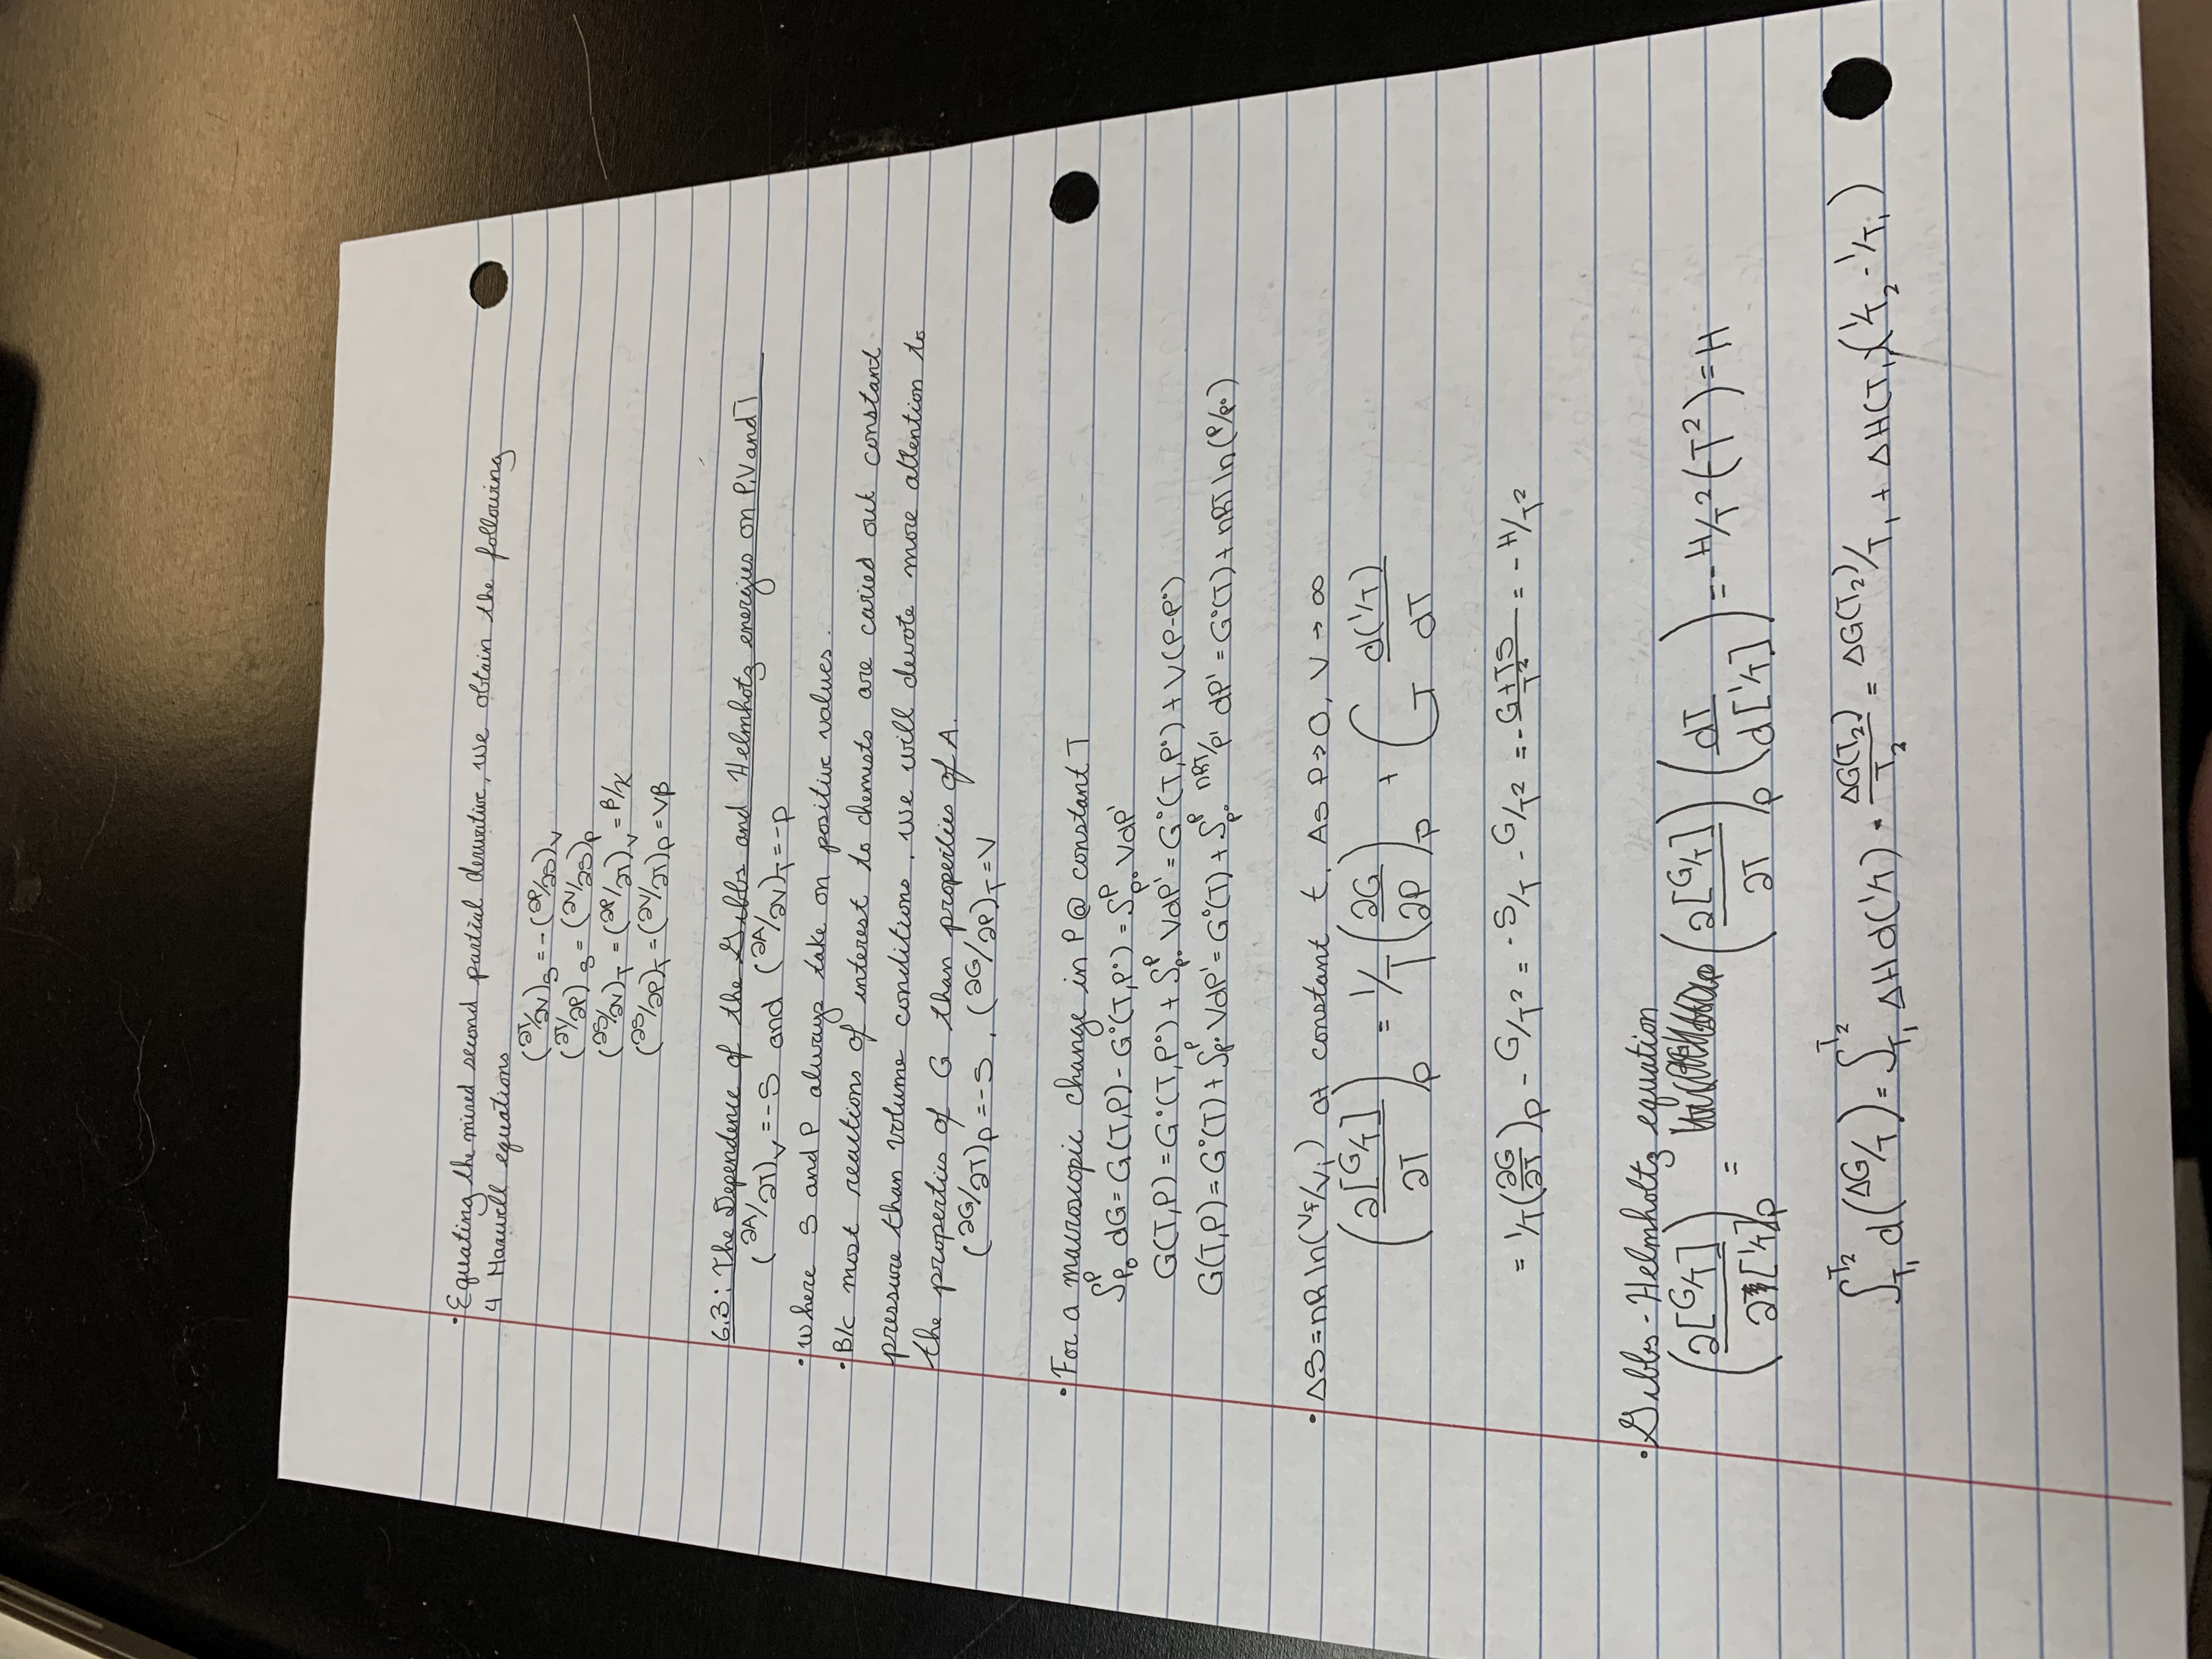 • Equating the mixed second partial derivative, we obtain the following
4 Maxwell equations
(∂T/∂V)_S = -(∂P/∂S)_V
(∂T/∂P)_S = (∂V/∂S)_P
(∂S/∂V)_T = (∂P/∂T)_V = β/κ
(∂S/∂P)_T = (∂V/∂T)_P = Vβ
6.3: The Dependence of the Gibbs and Helmhotz energies on P,V and T
(∂A/∂T)_V = -S and (∂A/∂V)_T = -P
• Where S and P always take on positive values.
• B/c most reactions of interest to chemists are caried out constant
pressure than volume conditions, we will devote more attention to
the properties of G than properties of A.
(∂G/∂T)_P = -S, (∂G/∂P)_T = V
• For a macroscopic change in P @ constant T
∫_{P₀}^{P} dG = G(T,P) - G°(T,P°) = ∫_{P°}^{P} VdP'
G(T,P) = G°(T,P°) + ∫_{P°}^{P} VdP' = G°(T,P°) + V(P-P°)
G(T,P) = G°(T) + ∫_{P°}^{P} VdP' = G°(T) + ∫_{P°}^{P} nRT/P' dP' = G°(T) + nRT ln(P/P°)
• ΔS = nR ln(Vf/Vi) at constant t. As P→0, V→∞
(∂[G/T]/∂T)_P = 1/T (∂G/∂P)_P + G d(1/T)/dT
= 1/T (∂G/∂T)_P - G/T² = -S/T - G/T² = -(G+TS)/T² = -H/T²
• Gibbs-Helmholtz equation
(∂[G/T]/∂[1/T])_P = (∂[G/T]/∂T)_P (dT/d[1/T]) = -H/T² (-T²) = H
∫_{T₁}^{T₂} d(ΔG/T) = ∫_{T₁}^{T₂} ΔH d(1/T) · ΔG(T₂)/T₂ = ΔG(T₂)/T₁ + ΔH(T₁)(1/T₂ - 1/T₁)